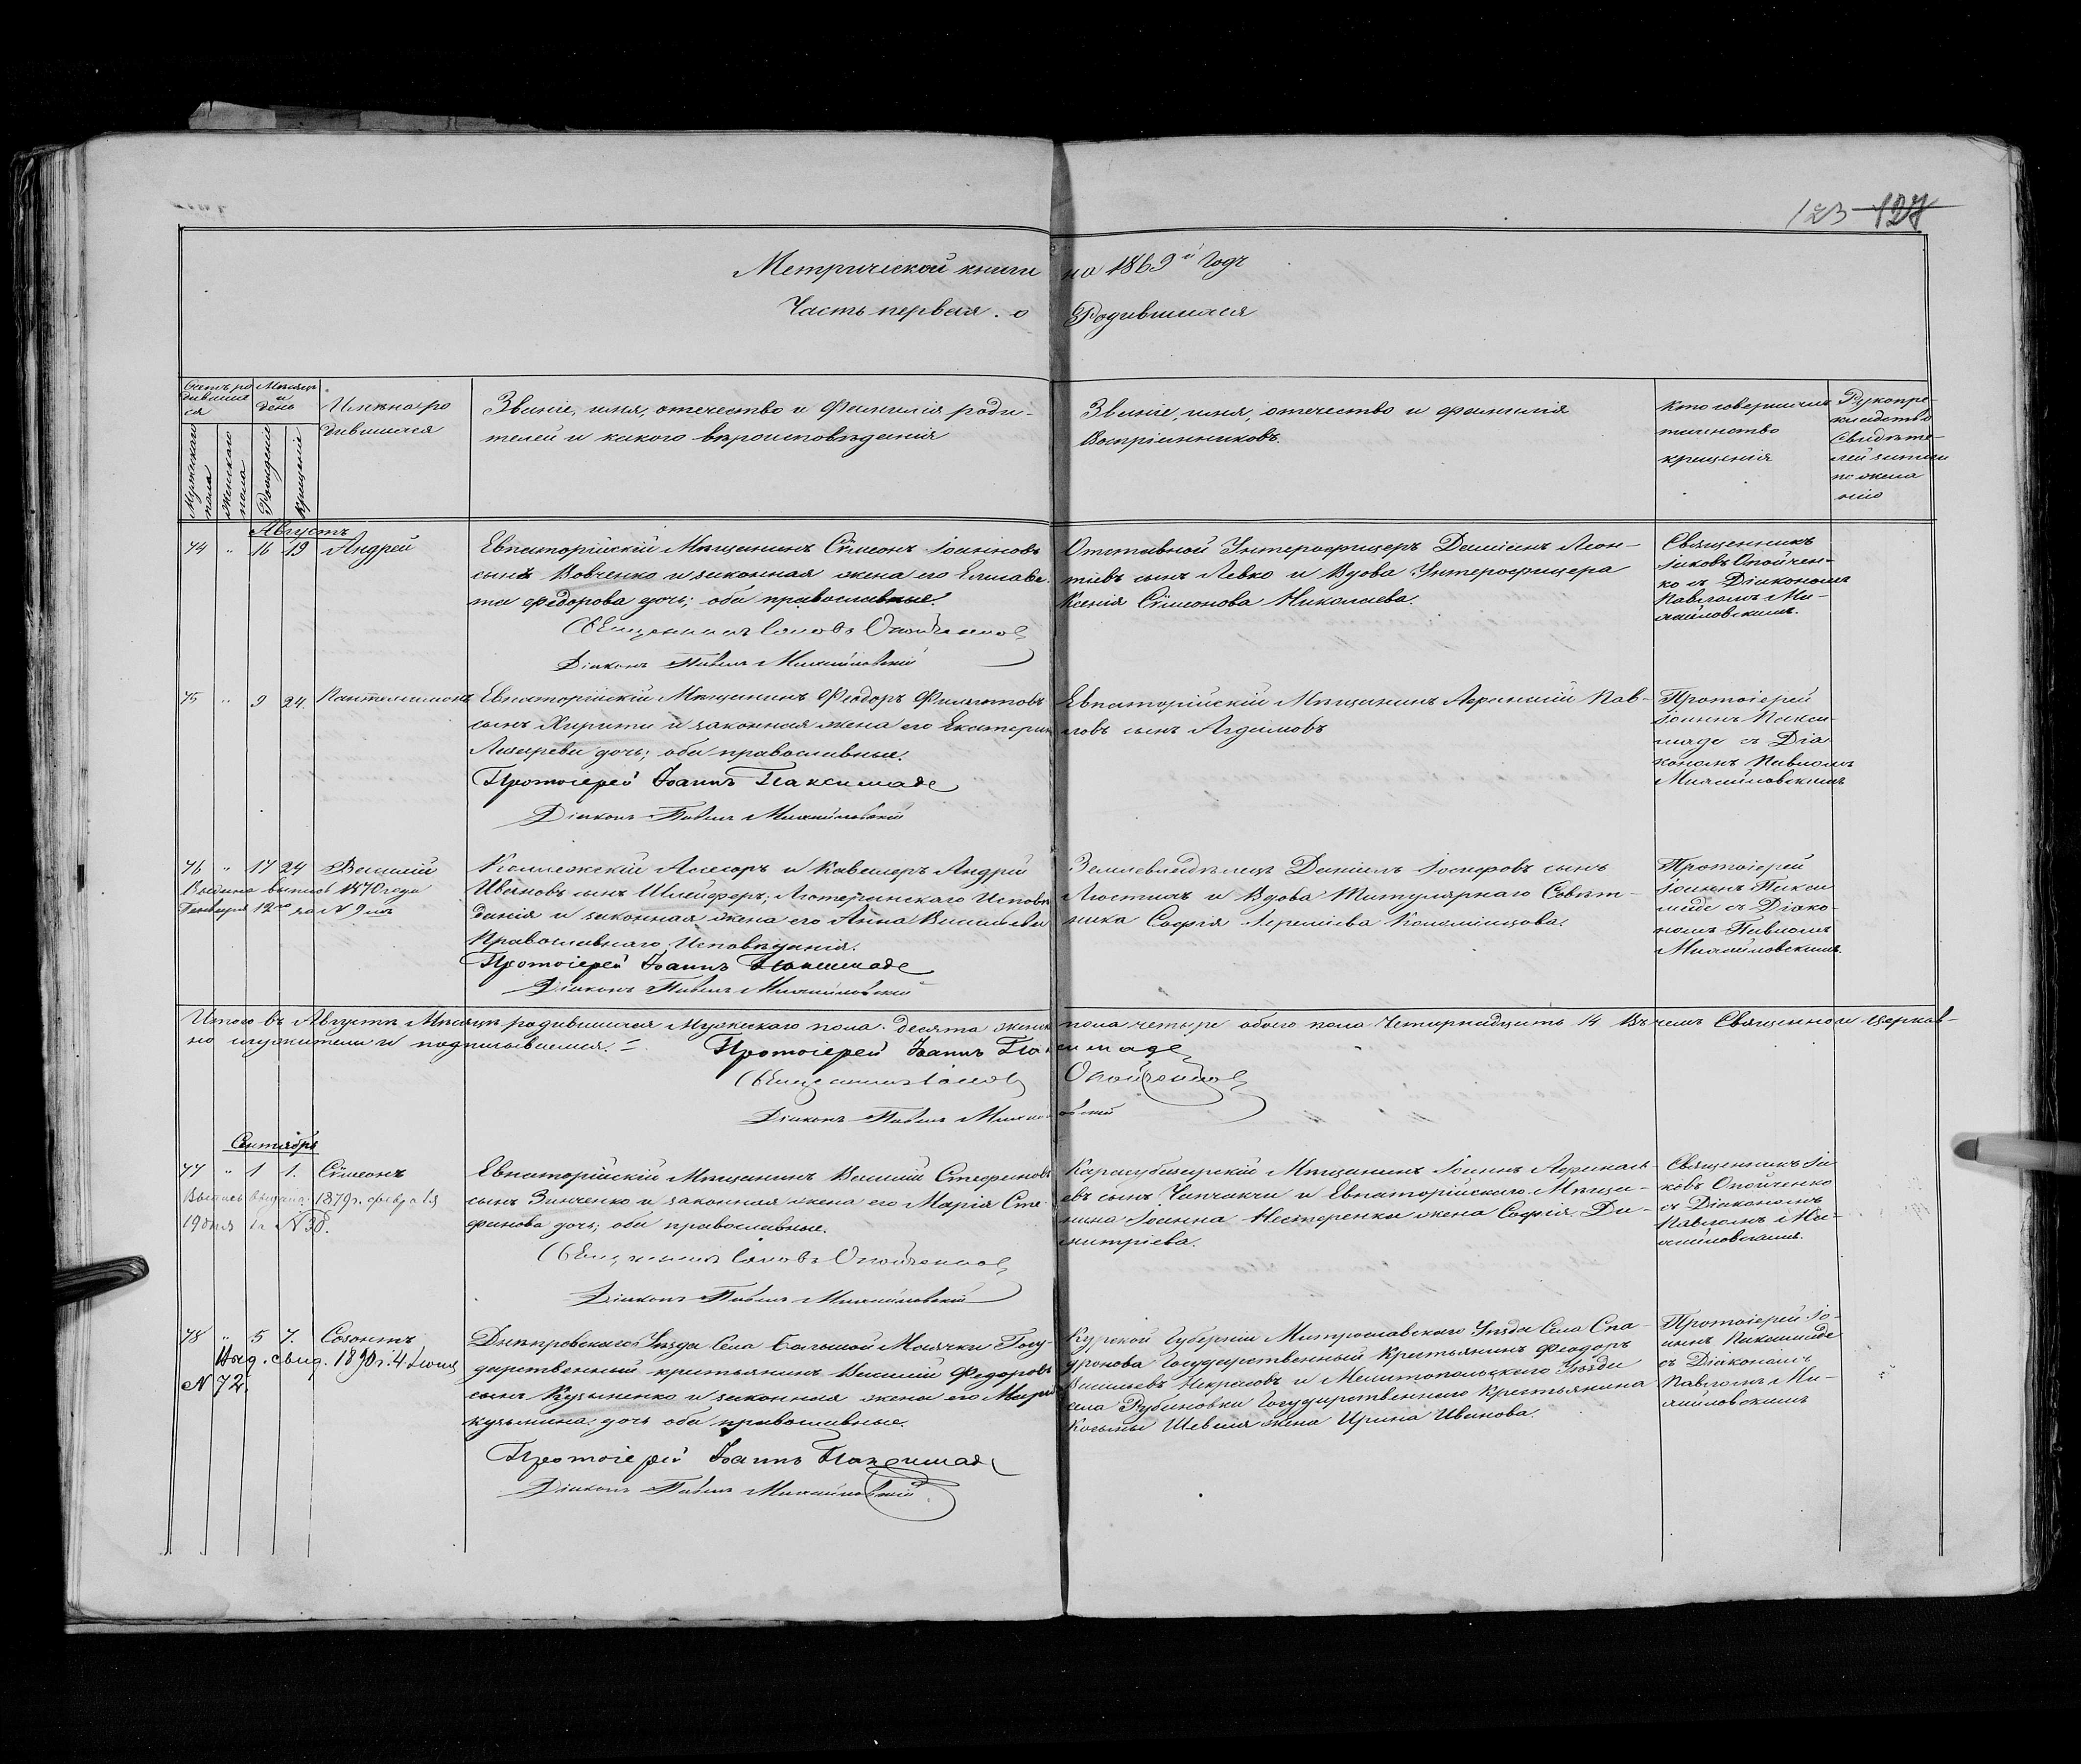 123 127
Метрической книги на 1869й Годъ
Часть первая. о Родившихся
Счетъ ро
дивших
ся
Мѣсяцъ
и
день
Мужескаго
пола
Женскаго
пола
Рожденiе
Крещенiе
Имена ро
дившихся
Званiе, имя, отечество и Фамилiя роди-
телей и какого вѣроисповѣданiя
Званiе, имя, отечество и фамилiя
Воспрiемниковъ.
Кто совершалъ
таинство
крещенiя
Рукопри-
кладство
Свидѣте-
лей записи
по жела
нiю
Августъ
74 " 16 19 Андрей
Евпаторiйскiй Мѣщанинъ Сѵмеонъ Iоанновъ
сынъ Вовченко и законная жена его Елисаве
та Федорова дочь; оба православные.
Священникъ Iаковъ Опойченко
Дiаконъ Павелъ Михайловскiй
Отставной Унтерофицеръ Дамiанъ Леон-
тiевъ сынъ Левко и Вдова Унтерофицера
Ксенiя Сѵмеонова Николаева.
Священникъ
Iаковъ Опойчен-
ко съ Дiакономъ
Павломъ Ми-
хайловскимъ.
75 " 9 24. Пантелеимонъ
Евпаторiйскiй Мѣщанинъ Феодоръ Филиповъ
сынъ Харити и законная жена его Екатерина
Лазарева дочь; оба православные.
Протоiерей Iоаннъ Паксимаде
Дiаконъ Павелъ Михайловскiй
Евпаторiйскiй Мѣщанинъ Афанасiй Пав-
ловъ сынъ
Протоiерей
Iоаннъ Пакси-
маде съ Дiа
кономъ Павломъ
Михайловскимъ
76 " 17 24 Василiй
Выдана выпись 1870 года
Генваря 12го за N 9мъ
Коллежскiй Асесоръ и Кавалеръ Андрей
Ивановъ сынъ Шлейферъ; Лютеранскаго Исповѣ
данiя и законная жена его Анна Васильева
Православнаго Исповѣданiя.
Протоiерей Iоаннъ Паксимаде
Дiаконъ Павелъ Михайловскiй
Землевладѣлецъ Данiилъ Iосифовъ сынъ
и Вдова Титулярнаго Совѣт-
ника Софiя Iеремiева
Протоiерей
Iоаннъ Пакси
маде съ Дiако-
номъ Павломъ
Михайловскимъ.
Итого въ Августѣ Мѣсяцѣ родившихся Мужескаго пола десять женск пола четыре обоего пола Четырнадцать 14 Въ чемъ Священно и Церков-
но служители и подписываемся. Протоiерей Iоаннъ Паксимаде
Священникъ Iаковъ Опойченко
Дiаконъ Павелъ Михайловскiй
Сентябрь
77 " 1 1. Сѵмеонъ
Выпись выдана 1879 г. февраля
19 дня за N 38.
Евпаторiйскiй Мѣщанинъ Василiй Стефановъ
сынъ Зинченко и законная жена его Марiя Сте
фанова дочь; оба православные.
Священникъ Iаковъ Опойченко
Дiаконъ Павелъ Михайловскiй
Карасубазарскiй Мѣщанинъ Iоаннъ Афанась-
евъ сынъ Чапчакчи и Евпаторiйскаго Мѣща-
нина Iоанна Нестеренка жена Софiя Ди-
митрiева.
Священникъ Iа
ковъ Опойченко
съ Дiакономъ
Павломъ Ми-
хайловскимъ.
78 " 5 7. Созонтъ
Выд. свид. 1890 г. 4 Iюня
N 72.
Днѣпровскаго Уѣзда Села Большой Маячки Госу
дарственный крестьянинъ Василiй Федоровъ
сынъ Кузьменко и законная жена его Марiя
кузьмина дочь оба православные.
Протоiерей Iоаннъ Паксимаде
Дiаконъ Павелъ Михайловскiй
Курской Губернiи Уѣзда Села Спа-
Государственный Крестьянинъ Феодоръ
Васильевъ Некрасовъ и Мелитопольскаго Уѣзда
села Рубановки Государственнаго Крестьянина
Козьмы Шевеля жена Ирина Иванова.
Протоiерей Iо-
аннъ Паксимаде
съ Дiакономъ
Павломъ Ми-
хайловскимъ